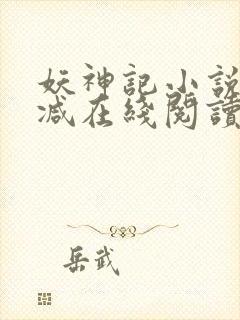 妖神記小說
減在綫閱讀
岳武